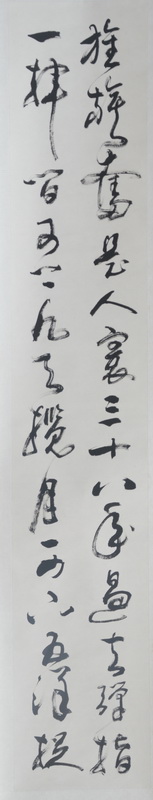 旌旗奮是人寰三十八年過去彈指
一揮間可上九天攬月可下五洋捉